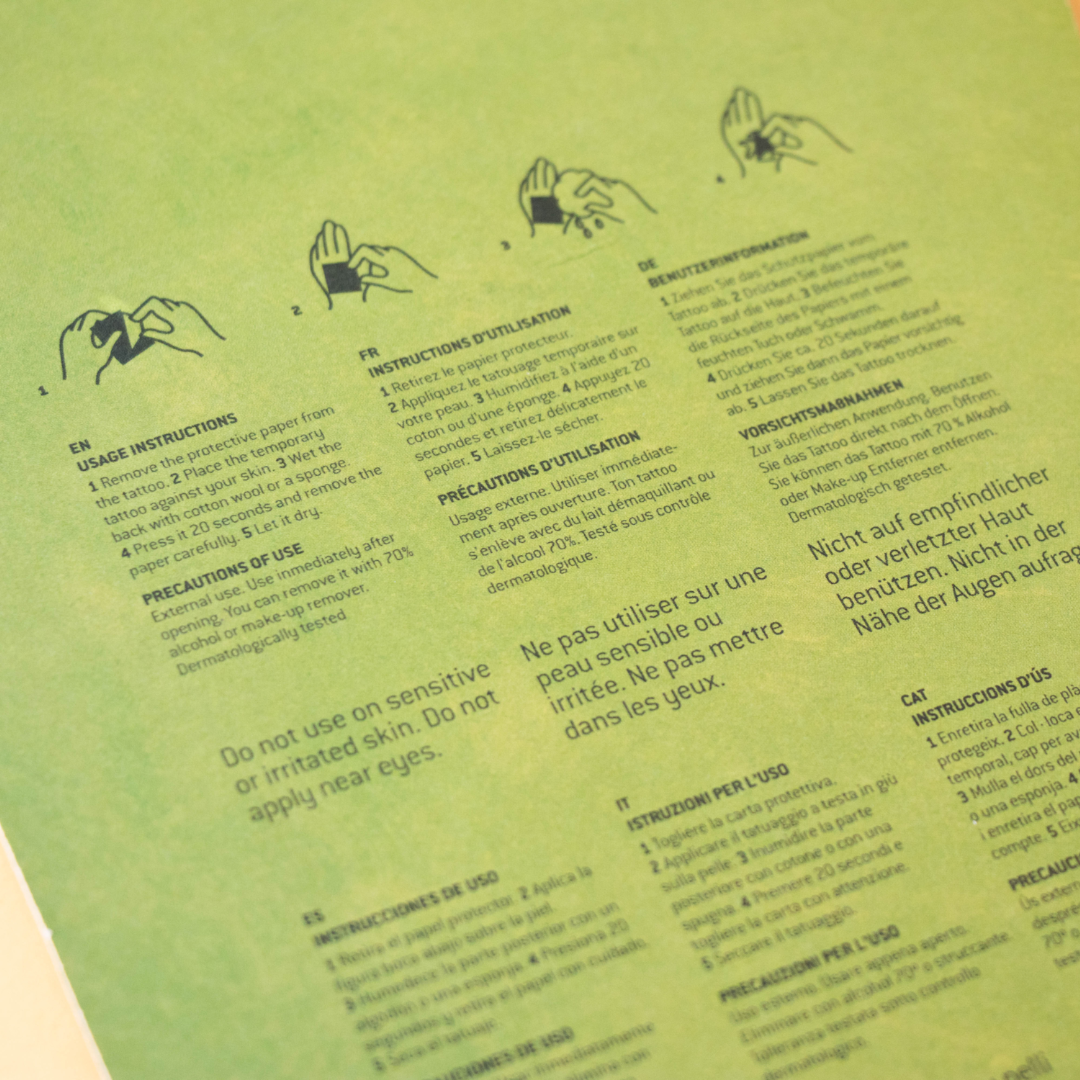 1
2
3
4
EN
USAGE INSTRUCTIONS
1 Remove the protective paper from
the tattoo. 2 Place the temporary
tattoo against your skin. 3 Wet the
back with cotton wool or a sponge.
4 Press it 20 seconds and remove the
paper carefully. 5 Let it dry.
PRECAUTIONS OF USE
External use. Use inmediately after
opening. You can remove it with 70%
alcohol or make-up remover.
Dermatologically tested
Do not use on sensitive
or irritated skin. Do not
apply near eyes.
FR
INSTRUCTIONS D'UTILISATION
1 Retirez le papier protecteur.
2 Appliquez le tatouage temporaire sur
votre peau. 3 Humidifiez à l'aide d'un
coton ou d'une éponge. 4 Appuyez 20
secondes et retirez délicatement le
papier. 5 Laissez-le sécher.
PRÉCAUTIONS D'UTILISATION
Usage externe. Utiliser immédiate-
ment après ouverture. Ton tattoo
s'enlève avec du lait démaquillant ou
de l'alcool 70%. Testé sous contrôle
dermatologique.
Ne pas utiliser sur une
peau sensible ou
irritée. Ne pas mettre
dans les yeux.
DE
BENUTZERINFORMATION
1 Ziehen Sie das Schutzpapier vom
Tattoo ab. 2 Drücken Sie das temporäre
Tattoo auf die Haut. 3 Befeuchten Sie
die Rückseite des Papiers mit einem
feuchten Tuch oder Schwamm.
4 Drücken Sie ca. 20 Sekunden darauf
und ziehen Sie dann das Papier vorsichtig
ab. 5 Lassen Sie das Tattoo trocknen.
VORSICHTSMAßNAHMEN
Zur äußerlichen Anwendung. Benutzen
Sie das Tattoo direkt nach dem Öffnen.
Sie können das Tattoo mit 70 % Alkohol
oder Make-up Entferner entfernen.
Dermatologisch getestet.
Nicht auf empfindlicher
oder verletzter Haut
benützen. Nicht in der
Nähe der Augen aufrag
ES
INSTRUCCIONES DE USO
1 Retira el papel protector. 2 Aplica la
figura boca abajo sobre la piel.
3 Humedece la parte posterior con un
algodón o una esponja. 4 Presiona 20
segundos y retire el papel con cuidado.
5 Seca el tatuaje.
UCIONES DE USO
inmediatamente
elimina con
IT
ISTRUZIONI PER L'USO
1 Togliere la carta protettiva.
2 Applicare il tatuaggio a testa in giù
sulla pelle. 3 Inumidire la parte
posteriore con cotone o con una
spugna. 4 Premere 20 secondi e
togliere la carta con attenzione.
5 Seccare il tatuaggio.
PRECAUZIONI PER L'USO
Uso esterno. Usare appena aperto.
Eliminare con alcohol 70° o struccante.
Toleranza testata sotto controllo
dermatologico.
CAT
INSTRUCCIONS D'ÚS
1 Enretira la fulla de plà
protegeix. 2 Col·loca e
temporal, cap per av
3 Mulla el dors del
o una esponja. 4
i enretira el pap
compte. 5 Eix
PRECAUCI
Ús extern
despré
70° o
test
nelli